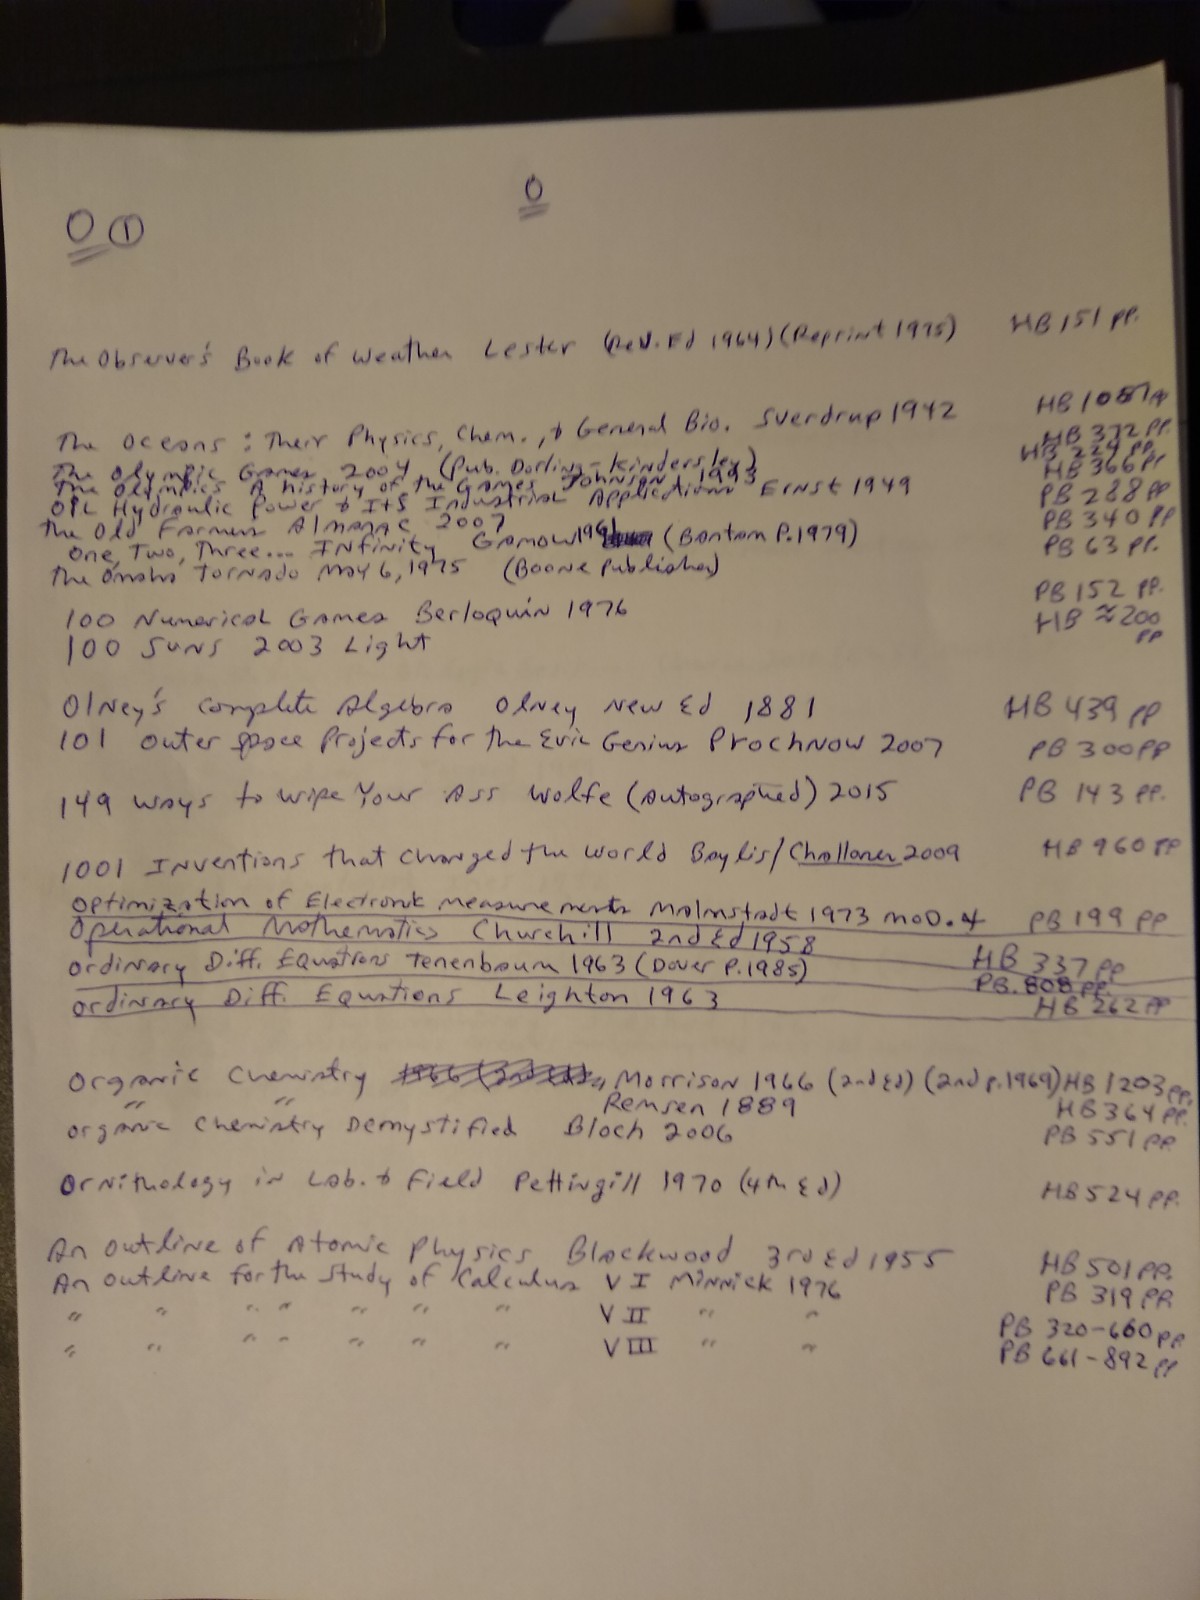 O
O ①
The Observer's Book of Weather Lester (Rev. Ed 1964) (Reprint 1975) HB 151 pp.
The Oceans: Their Physics, Chem., & General Bio. Sverdrup 1942 HB 1087 pp
The Olympic Games 2004 (Pub. Dorling-Kindersley) HB 372 pp.
The Olympics A history of the Games Johnson 1993 HB 224 pp.
Oil Hydraulic Power & Its Industrial Applications Ernst 1949 HB 366 pp
The Old Farmers Almanac 2007 PB 288 pp
One, Two, Three... Infinity Gamow 1961 (Bantam P. 1979) PB 340 pp
The Omaha Tornado May 6, 1975 (Boone Publisher) PB 63 pp.
100 Numerical Games Berloquin 1976 PB 152 pp.
100 Suns 2003 Light HB ≈200 pp
Olney's Complete Algebra Olney New Ed 1881 HB 439 pp
101 Outer Space Projects for the Evil Genius Prochnow 2007 PB 300 pp
149 Ways to Wipe Your Ass Wolfe (Autographed) 2015 PB 143 pp.
1001 Inventions that Changed the World Baylis/Challoner 2009 HB 960 pp
Optimization of Electronic Measurements Malmstadt 1973 Mod. 4 PB 199 pp
Operational Mathematics Churchill 2nd Ed 1958 HB 337 pp
Ordinary Diff. Equations Tenenbaum 1963 (Dover P. 1985) PB. 808 pp.
Ordinary Diff. Equations Leighton 1963 HB 262 pp
Organic Chemistry Morrison 1966 (2nd Ed) (2nd p. 1969) HB 1203 pp.
" " Remsen 1889 HB 364 pp.
Organic Chemistry Demystified Bloch 2006 PB 551 pp
Ornithology in Lab. & Field Pettingill 1970 (4th Ed) HB 524 pp.
An Outline of Atomic Physics Blackwood 3rd Ed 1955 HB 501 pp.
An Outline for the Study of Calculus V I Minnick 1976 PB 319 pp
" " " " " " " V II " " PB 320-660 pp
" " " " " " " V III " " PB 661-892 pp